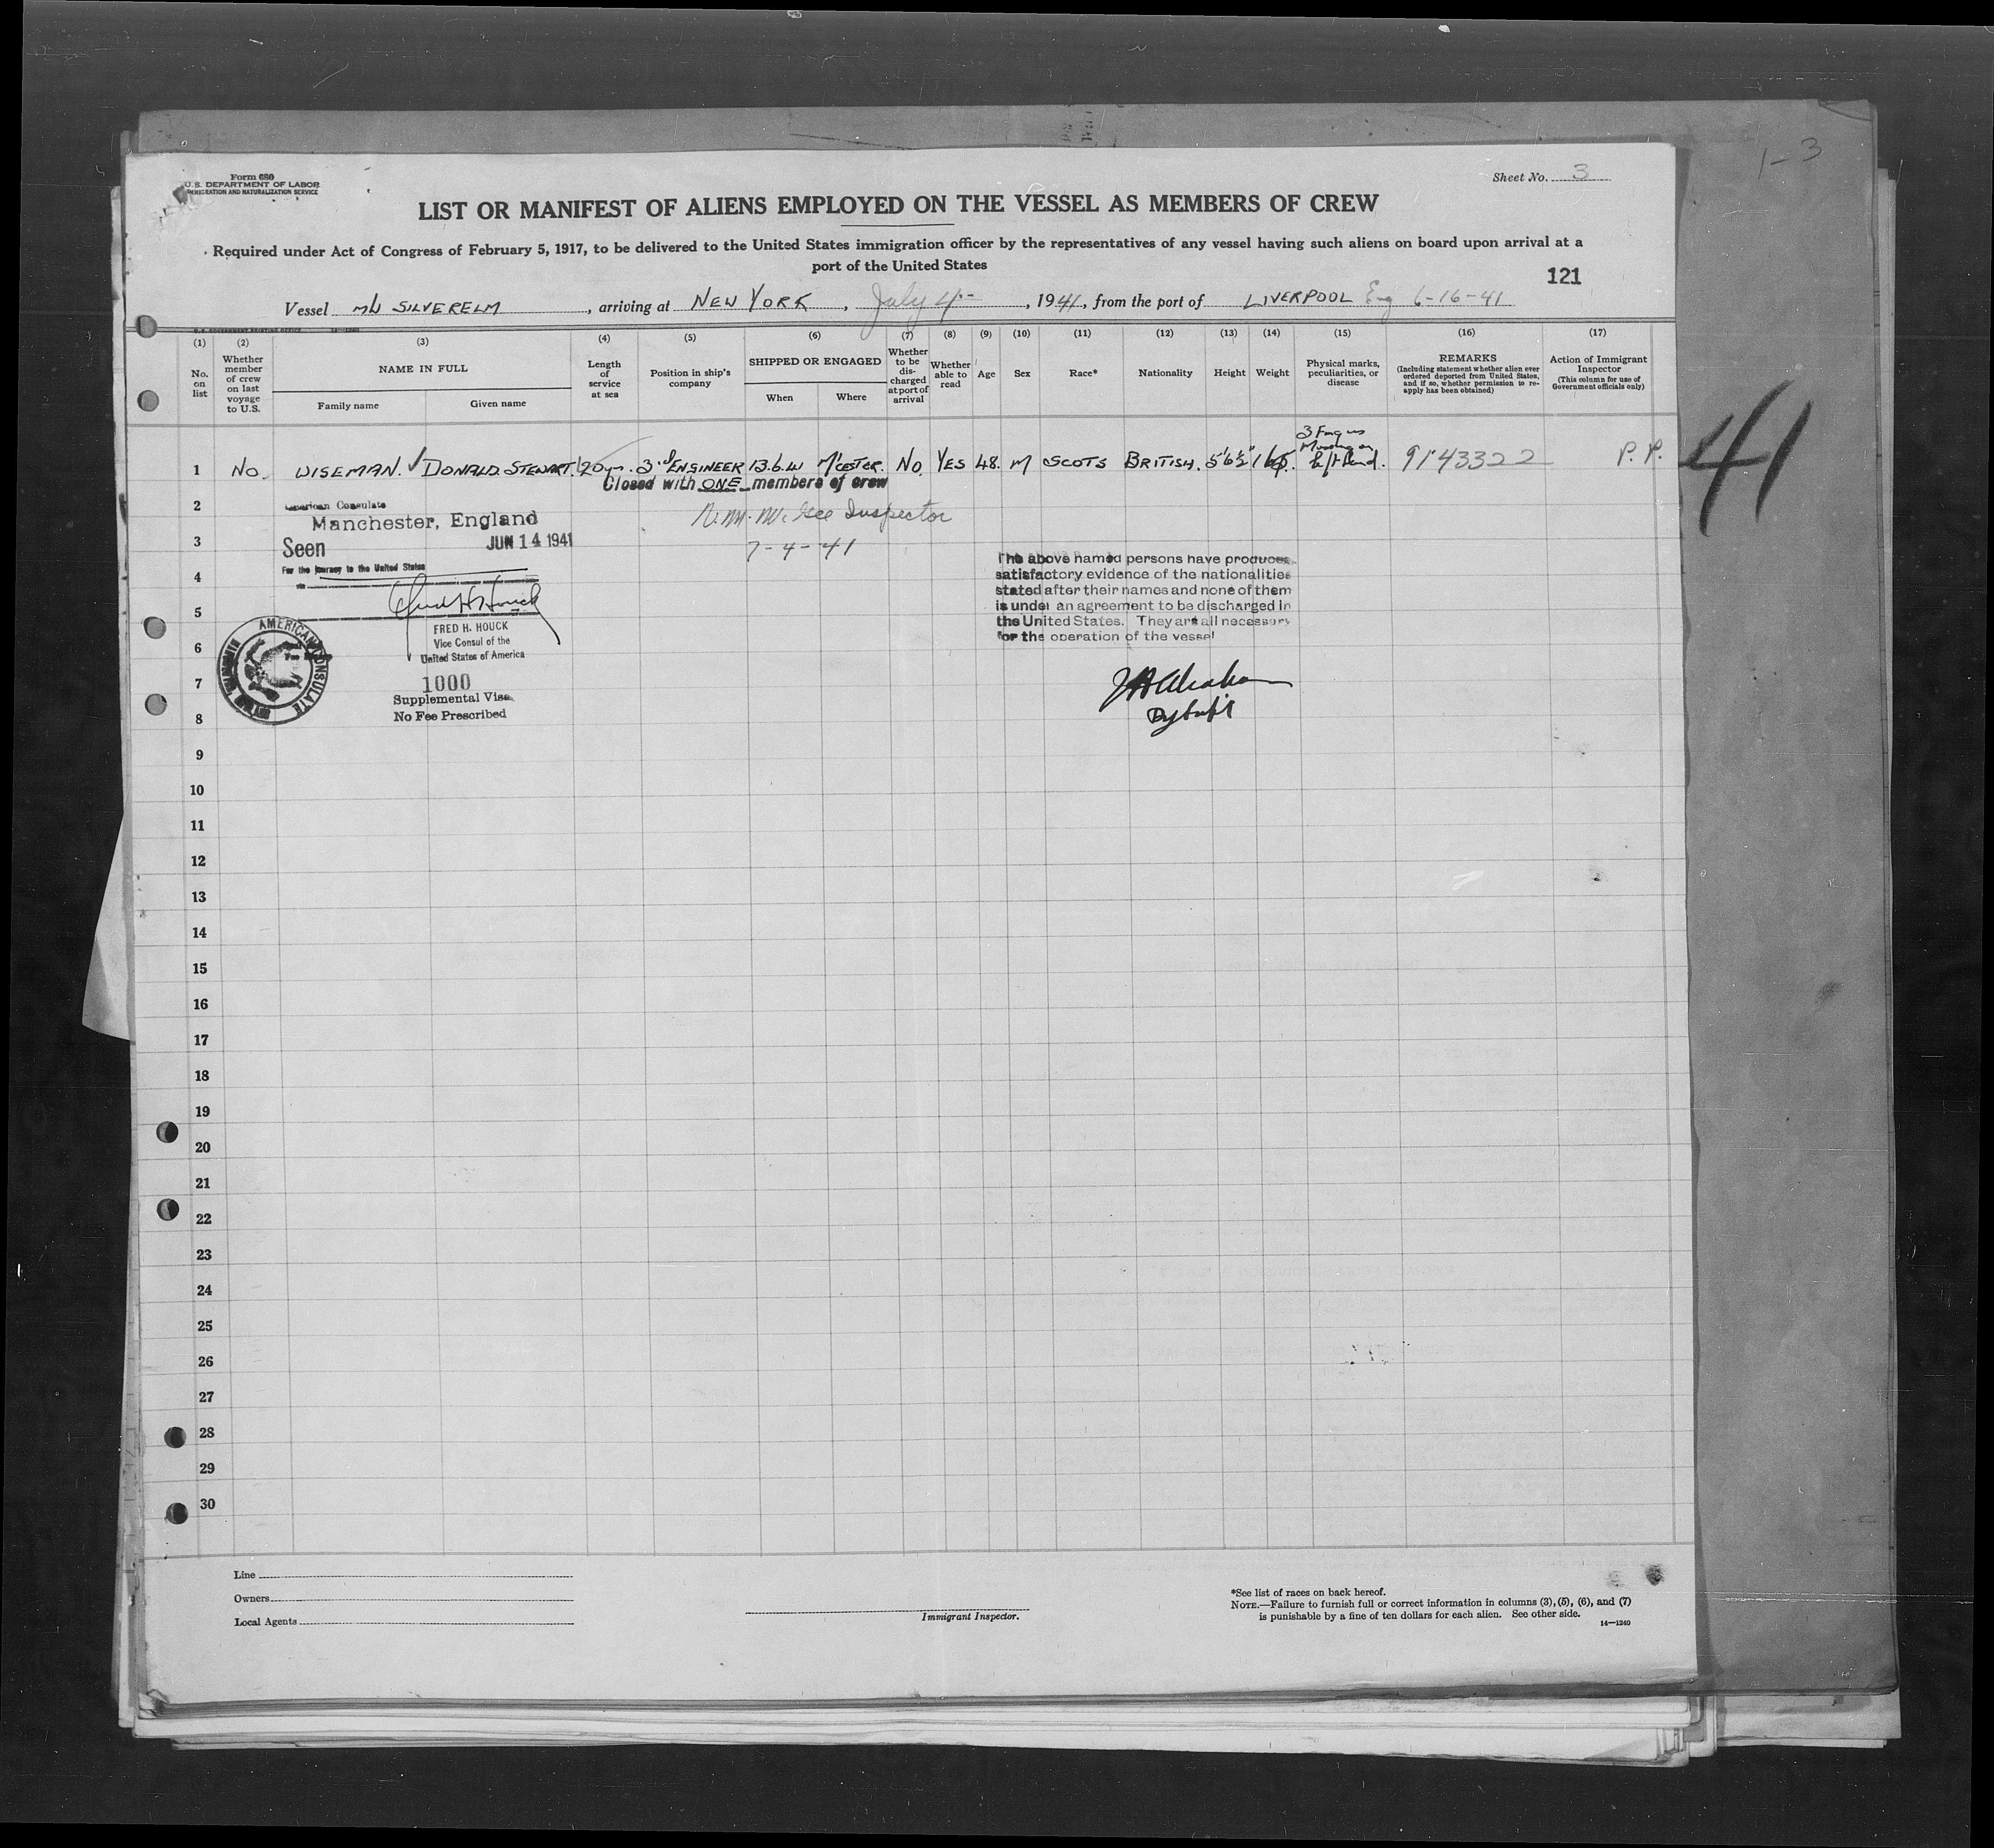 1-3
Form 680
U.S. DEPARTMENT OF LABOR
IMMIGRATION AND NATURALIZATION SERVICE
Sheet No. 3
LIST OR MANIFEST OF ALIENS EMPLOYED ON THE VESSEL AS MEMBERS OF CREW
Required under Act of Congress of February 5, 1917, to be delivered to the United States immigration officer by the representatives of any vessel having such aliens on board upon arrival at a
port of the United States
121
Vessel SILVERELM, arriving at NEW YORK, July 4, 1941, from the port of LIVERPOOL Eng 6-16-41
(1) (2) (3) (4) (5) (6) (7) (8) (9) (10) (11) (12) (13) (14) (15) (16) (17)
No. on list
Whether member of crew on last voyage to U.S.
NAME IN FULL
Family name
Given name
Length of service at sea
Position in ship's company
SHIPPED OR ENGAGED
When
Where
Whether to be discharged at port of arrival
Whether able to read
Age
Sex
Race*
Nationality
Height
Weight
Physical marks, peculiarities, or disease
REMARKS
(Including statement whether alien ever ordered deported from United States, and if so, whether permission to reapply has been obtained)
Action of Immigrant Inspector
(This column for use of Government officials only)
1 No. WISEMAN. ✓ DONALD. STEWART. 20 yrs. 3rd ENGINEER 13.6.41 M'CESTER. No. YES 48. M SCOTS BRITISH. 5'6½" 3 Fingers Missing on left Hand. 9143322 P.P.
41
Closed with ONE members of crew
2
American Consulate
Manchester, England
Inspector
3
Seen JUN 14 1941
7-4-41
For the journey to the United States
4
via
The above named persons have produced
satisfactory evidence of the nationalities
stated after their names and none of them
is under an agreement to be discharged in
the United States. They are all necessary
for the operation of the vessel
5
Fred H. Houck
FRED H. HOUCK
Vice Consul of the
United States of America
AMERICAN CONSULATE
6
7
1000
Supplemental Visa
No Fee Prescribed
8
9
10
11
12
13
14
15
16
17
18
19
20
21
22
23
24
25
26
27
28
29
30
Line
Owners
Local Agents
Immigrant Inspector.
*See list of races on back hereof.
NOTE.—Failure to furnish full or correct information in columns (3), (5), (6), and (7)
is punishable by a fine of ten dollars for each alien. See other side.
14—1240